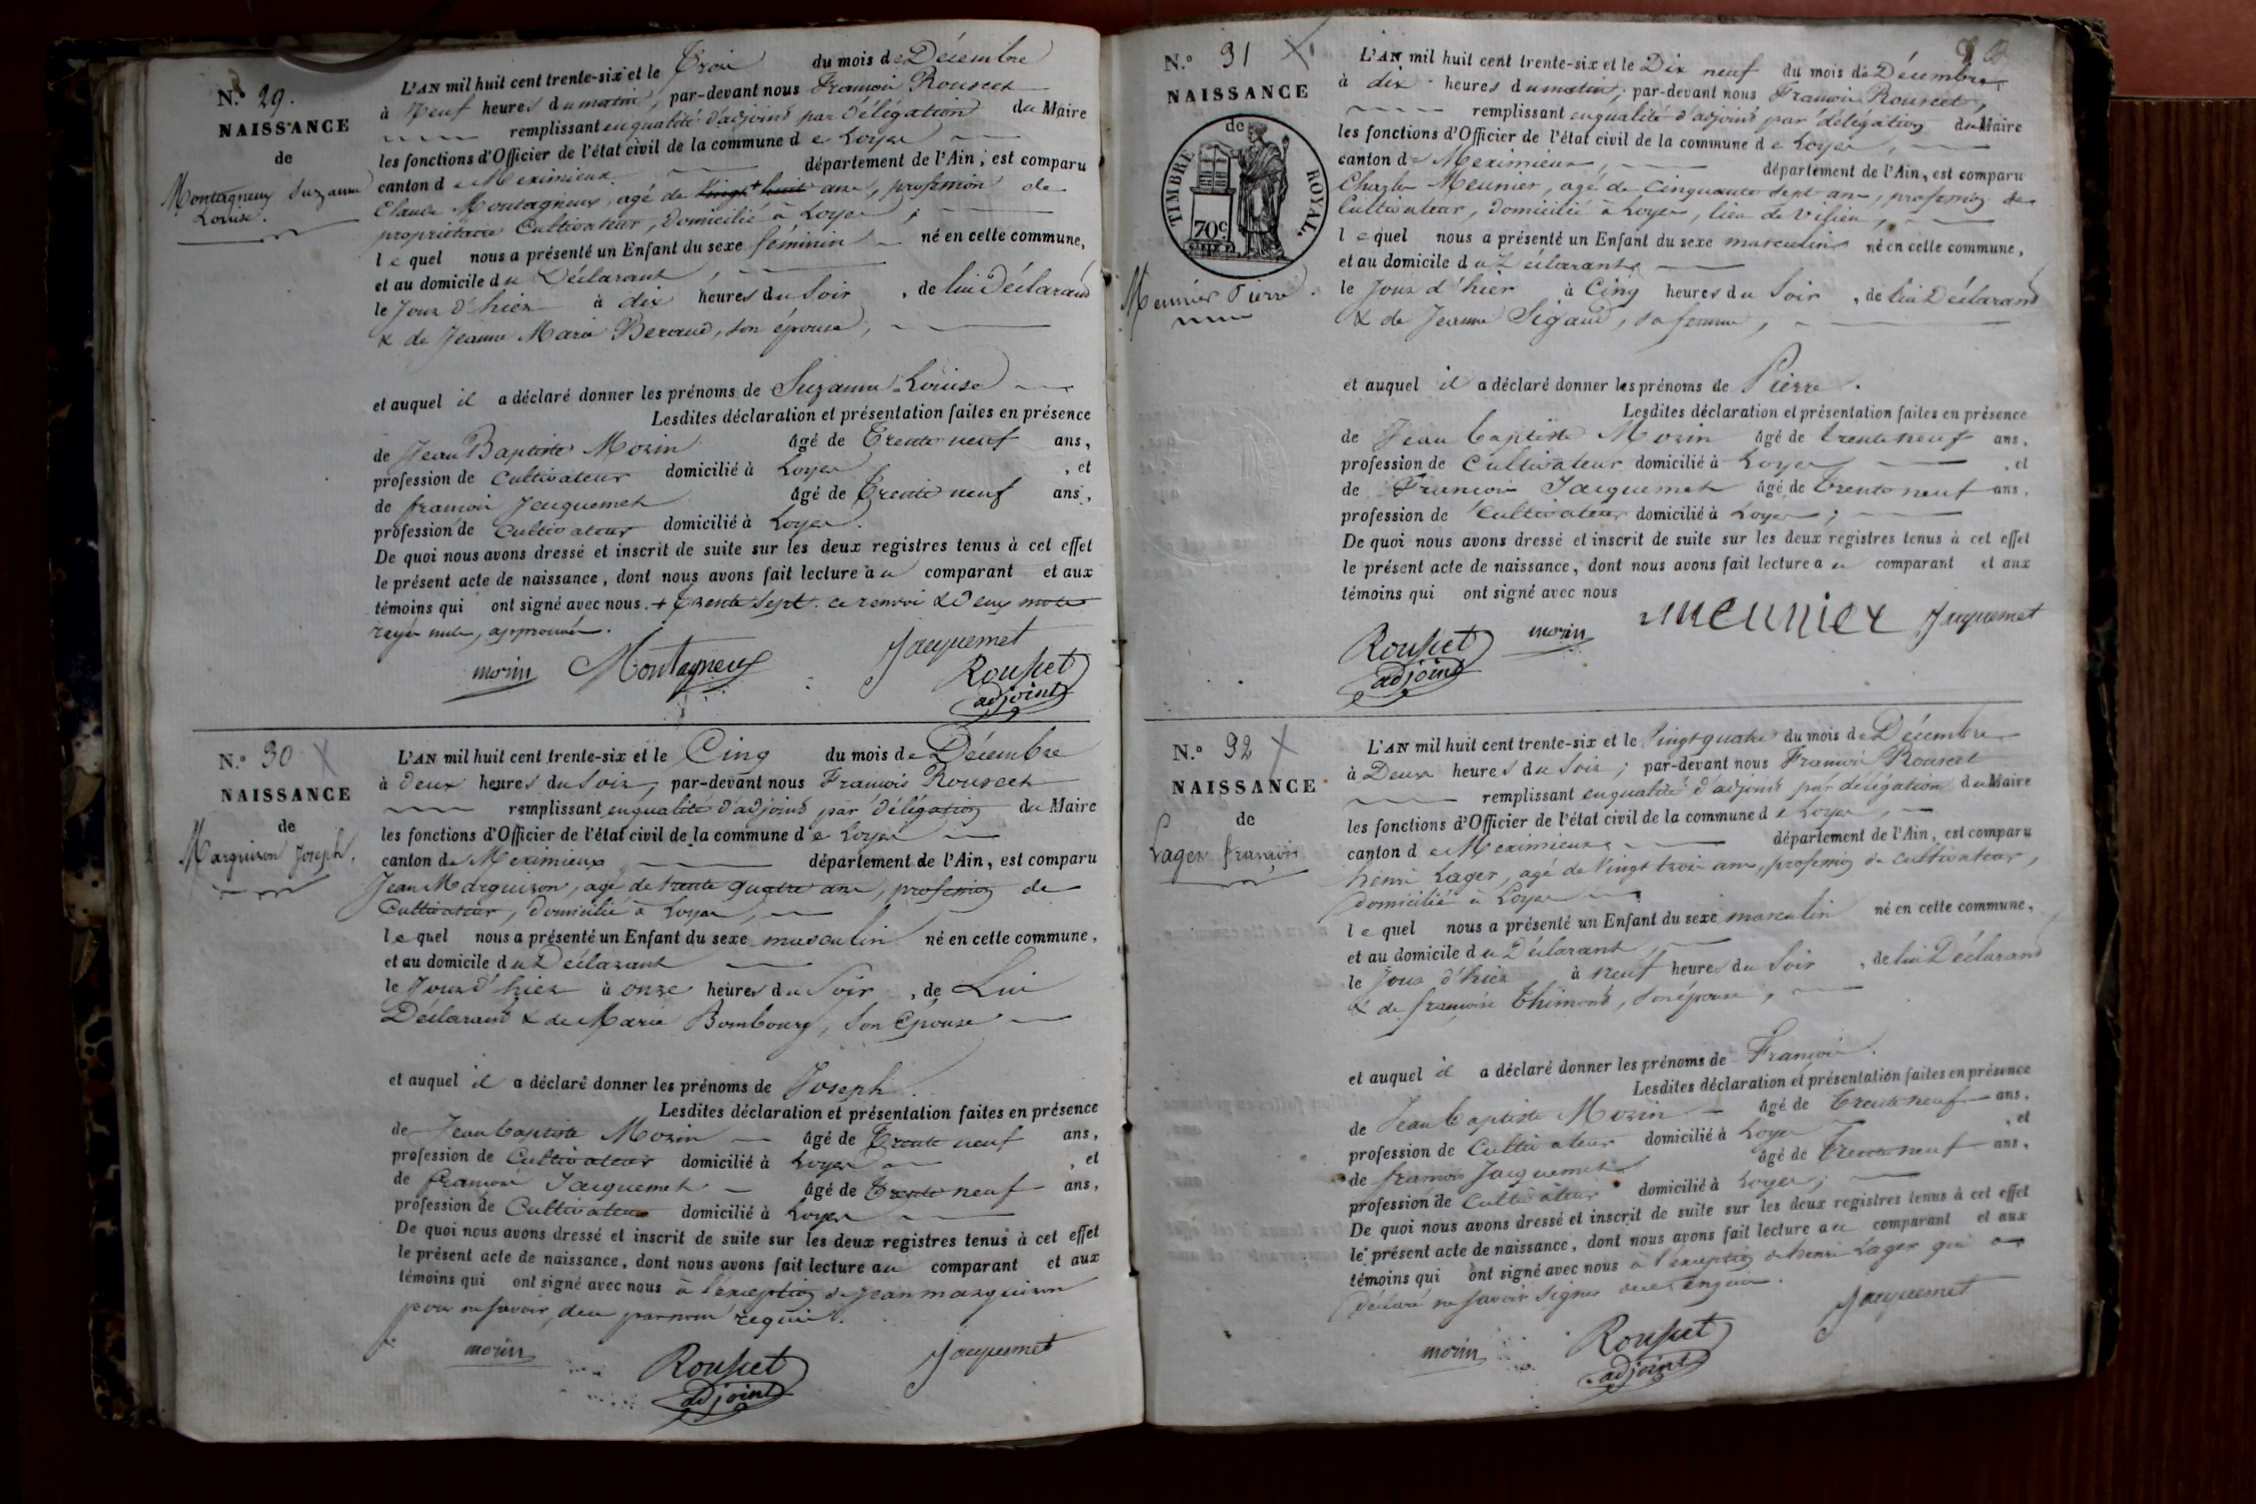 N.° 29.
NAISSANCE
de
Montagneux Suzanne
Louise.
L'AN mil huit cent trente-six et le Trois du mois de Décembre
à Neuf heures du matin, par-devant nous François Rousset
remplissant en qualité d'adjoint par délégation du Maire
les fonctions d'Officier de l'état civil de la commune de Loyes
canton de Meximieux département de l'Ain, est comparu
Claude Montagneux, agé de vingt + huit ans, profession de
propriétaire Cultivateur, domicilié à Loyes,
lequel nous a présenté un Enfant du sexe féminin né en cette commune,
et au domicile du Déclarant
le Jour d'hier à dix heures du Soir, de lui Déclarant
& de Jeanne Marie Beraud, son épouse,
et auquel il a déclaré donner les prénoms de Suzanne Louise
Lesdites déclaration et présentation faites en présence
de Jean Baptiste Morin âgé de Trente neuf ans,
profession de Cultivateur domicilié à Loyes, et
de François Jacquemet âgé de Trente neuf ans,
profession de Cultivateur domicilié à Loyes.
De quoi nous avons dressé et inscrit de suite sur les deux registres tenus à cet effet
le présent acte de naissance, dont nous avons fait lecture au comparant et aux
témoins qui ont signé avec nous. + Trente sept. ce renvoi & deux mots
rayés nuls, approuvés.
morin Montagneux Jacquemet
Rousset
adjoint
N.° 30
NAISSANCE
de
Marguison Joseph.
L'AN mil huit cent trente-six et le Cinq du mois de Décembre
à deux heures du Soir, par-devant nous François Rousset
remplissant en qualité d'adjoint par délégation du Maire
les fonctions d'Officier de l'état civil de la commune de Loyes
canton de Meximieux département de l'Ain, est comparu
Jean Marguison, agé de trente quatre ans, profession de
Cultivateur, domicilié à Loyes,
lequel nous a présenté un Enfant du sexe masculin né en cette commune,
et au domicile du Déclarant
le Jour d'hier à onze heures du Soir, de Lui
Déclarant & de Marie Bombourg, Son Epouse
et auquel il a déclaré donner les prénoms de Joseph.
Lesdites déclaration et présentation faites en présence
de Jean baptiste Morin âgé de Trente neuf ans,
profession de Cultivateur domicilié à Loyes, et
de François Jacquemet âgé de Trente neuf ans,
profession de Cultivateur domicilié à Loyes
De quoi nous avons dressé et inscrit de suite sur les deux registres tenus à cet effet
le présent acte de naissance, dont nous avons fait lecture au comparant et aux
témoins qui ont signé avec nous à l'exception de Jean marguison
pour ne savoir, de ce par nous requis.
morin Rousset Jacquemet
adjoint
N.° 31
NAISSANCE
de
TIMBRE ROYAL.
70c
Meunier Pierre.
L'AN mil huit cent trente-six et le Dix neuf du mois de Décembre
à dix heures du matin; par-devant nous François Rousset,
remplissant en qualité d'adjoint par délégation du Maire
les fonctions d'Officier de l'état civil de la commune de Loyes,
canton de Meximieux, département de l'Ain, est comparu
Charles Meunier, agé de Cinquante sept ans, profession de
Cultivateur, domicilié à Loyes, lieu de Vilieu,
lequel nous a présenté un Enfant du sexe masculin né en cette commune,
et au domicile du Déclarant,
le Jour d'hier à Cinq heures du Soir, de lui Déclarant
& de Jeanne Sigaud, sa femme,
et auquel il a déclaré donner les prénoms de Pierre.
Lesdites déclaration et présentation faites en présence
de Jean baptiste Morin âgé de trente neuf ans,
profession de Cultivateur domicilié à Loyes, et
de François Jacquemet âgé de trente neuf ans,
profession de Cultivateur domicilié à Loyes;
De quoi nous avons dressé et inscrit de suite sur les deux registres tenus à cet effet
le présent acte de naissance, dont nous avons fait lecture au comparant et aux
témoins qui ont signé avec nous
Rousset morin meunier Jacquemet
adjoint
N.° 32
NAISSANCE
de
Lager françois
L'AN mil huit cent trente-six et le Vingt quatre du mois de Décembre
à Deux heures du Soir; par-devant nous François Rousset
remplissant en qualité d'adjoint par délégation du Maire
les fonctions d'Officier de l'état civil de la commune de Loyes,
canton de Meximieux département de l'Ain, est comparu
henri Lager, agé de Vingt trois ans, profession de Cultivateur,
domicilié à Loyes
lequel nous a présenté un Enfant du sexe masculin né en cette commune,
et au domicile du Déclarant,
le Jour d'hier à neuf heures du Soir, de lui Déclarant
& de françoise Thimond, son épouse,
et auquel il a déclaré donner les prénoms de François.
Lesdites déclaration et présentation faites en présence
de Jean baptiste Morin âgé de Trente neuf ans,
profession de Cultivateur domicilié à Loyes, et
de françois Jacquemet âgé de Trente neuf ans,
profession de Cultivateur domicilié à Loyes;
De quoi nous avons dressé et inscrit de suite sur les deux registres tenus à cet effet
le présent acte de naissance, dont nous avons fait lecture au comparant et aux
témoins qui ont signé avec nous à l'exception de henri Lager qui a
déclaré ne savoir signer de ce enquis.
morin Rousset Jacquemet
adjoint